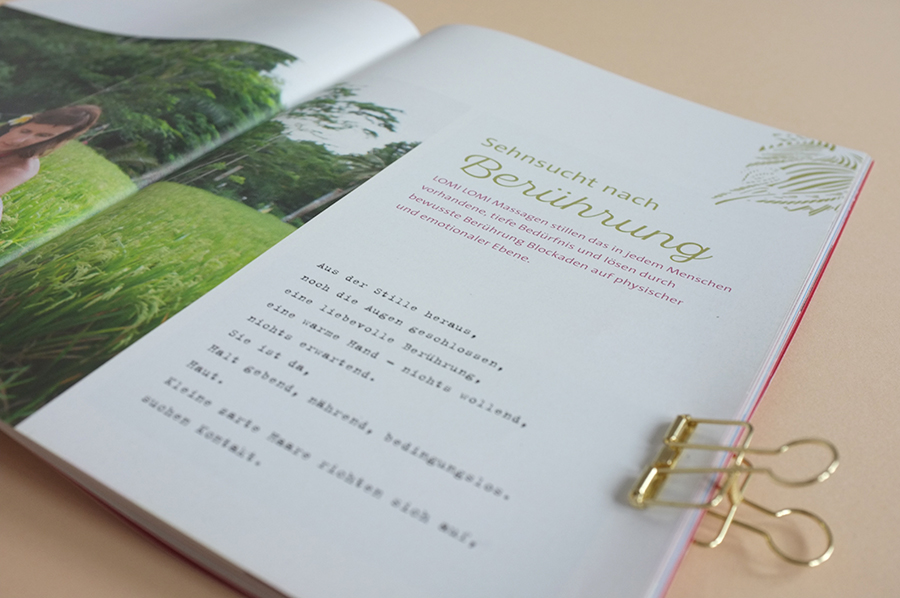 Sehnsucht nach
Berührung
LOMI LOMI Massagen stillen das in jedem Menschen
vorhandene, tiefe Bedürfnis und lösen durch
bewusste Berührung Blockaden auf physischer
und emotionaler Ebene.
Aus der Stille heraus,
noch die Augen geschlossen,
eine liebevolle Berührung,
eine warme Hand – nichts wollend,
nichts erwartend.
Sie ist da,
Halt gebend, nährend, bedingungslos.
Haut.
Kleine zarte Haare richten sich auf,
suchen Kontakt.